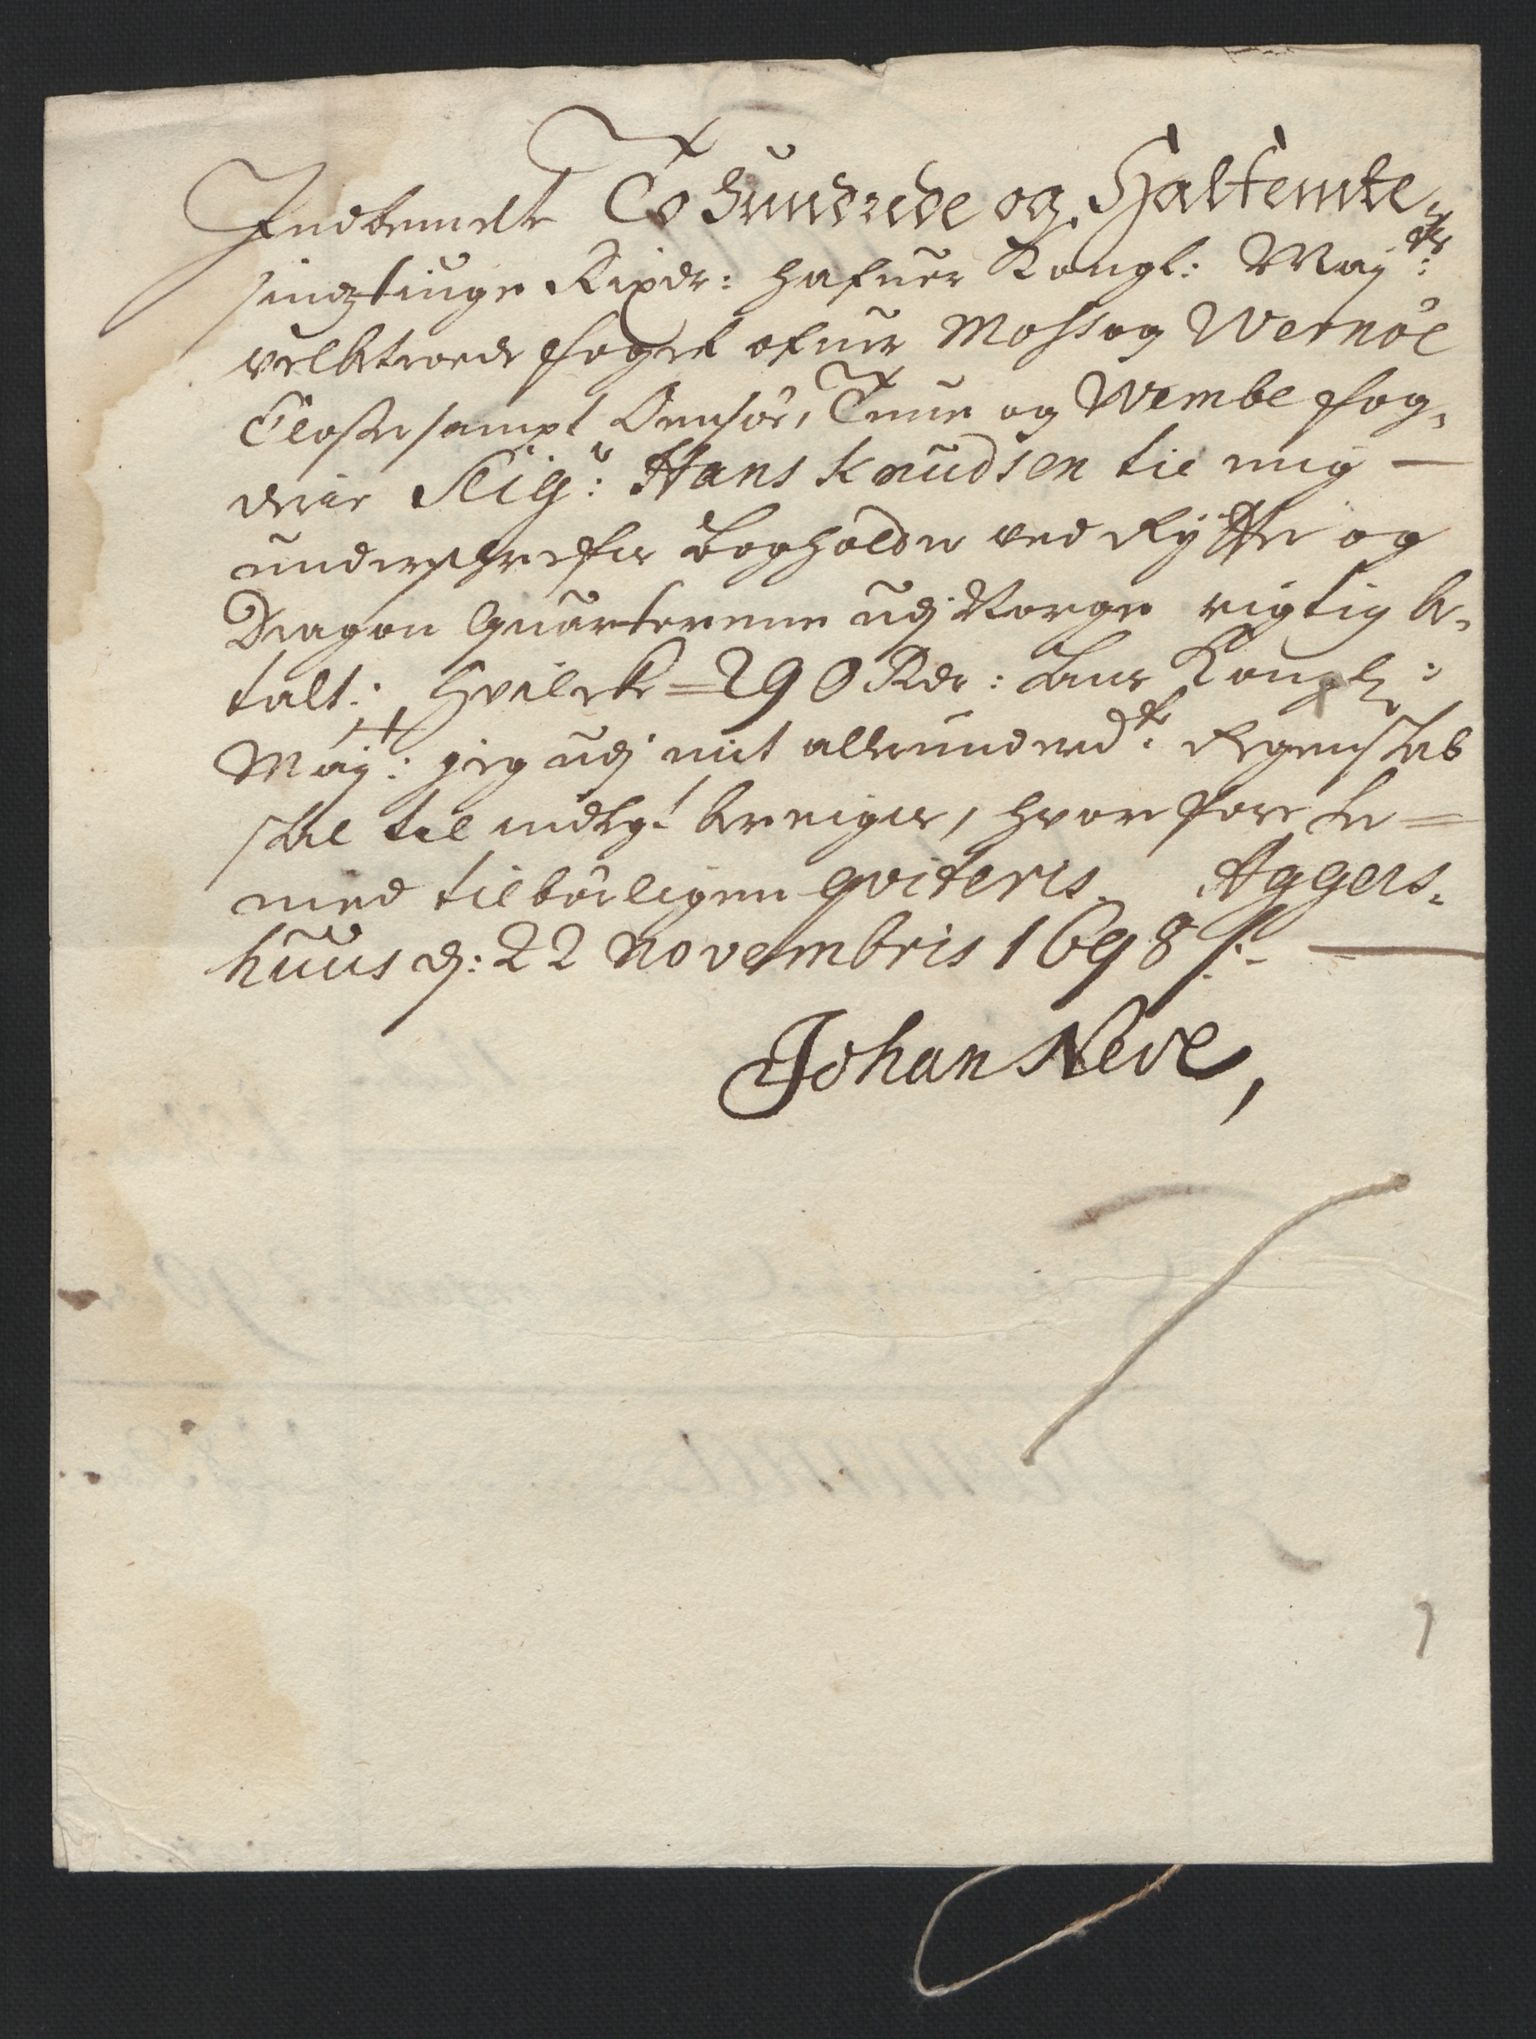 Indbemelte Tohundrede og Halfemte-
sindztiuge Rixdr: hafuer Kongl: Maÿ:ts
velbetroede foget ofuer Moss og Wernöe
Closter sampt Onsöe, Tune og Wembe fog-
derie Sigr: Hans Knudsen til mig —
underschrefne Bogholder ved Rytter og
Dragon Quarterene udj Norge rigtig be-
talt: hvilcke = 290 Rdr: hans Kongl:
Maÿt: jeg udj mit allerunderd:te Regenskab
skal til indtegt bereigne, hvorfore her=
med tilbörligen qviteris. Aggers-
huus d: 22 Novembris 1698
Johan Neve,